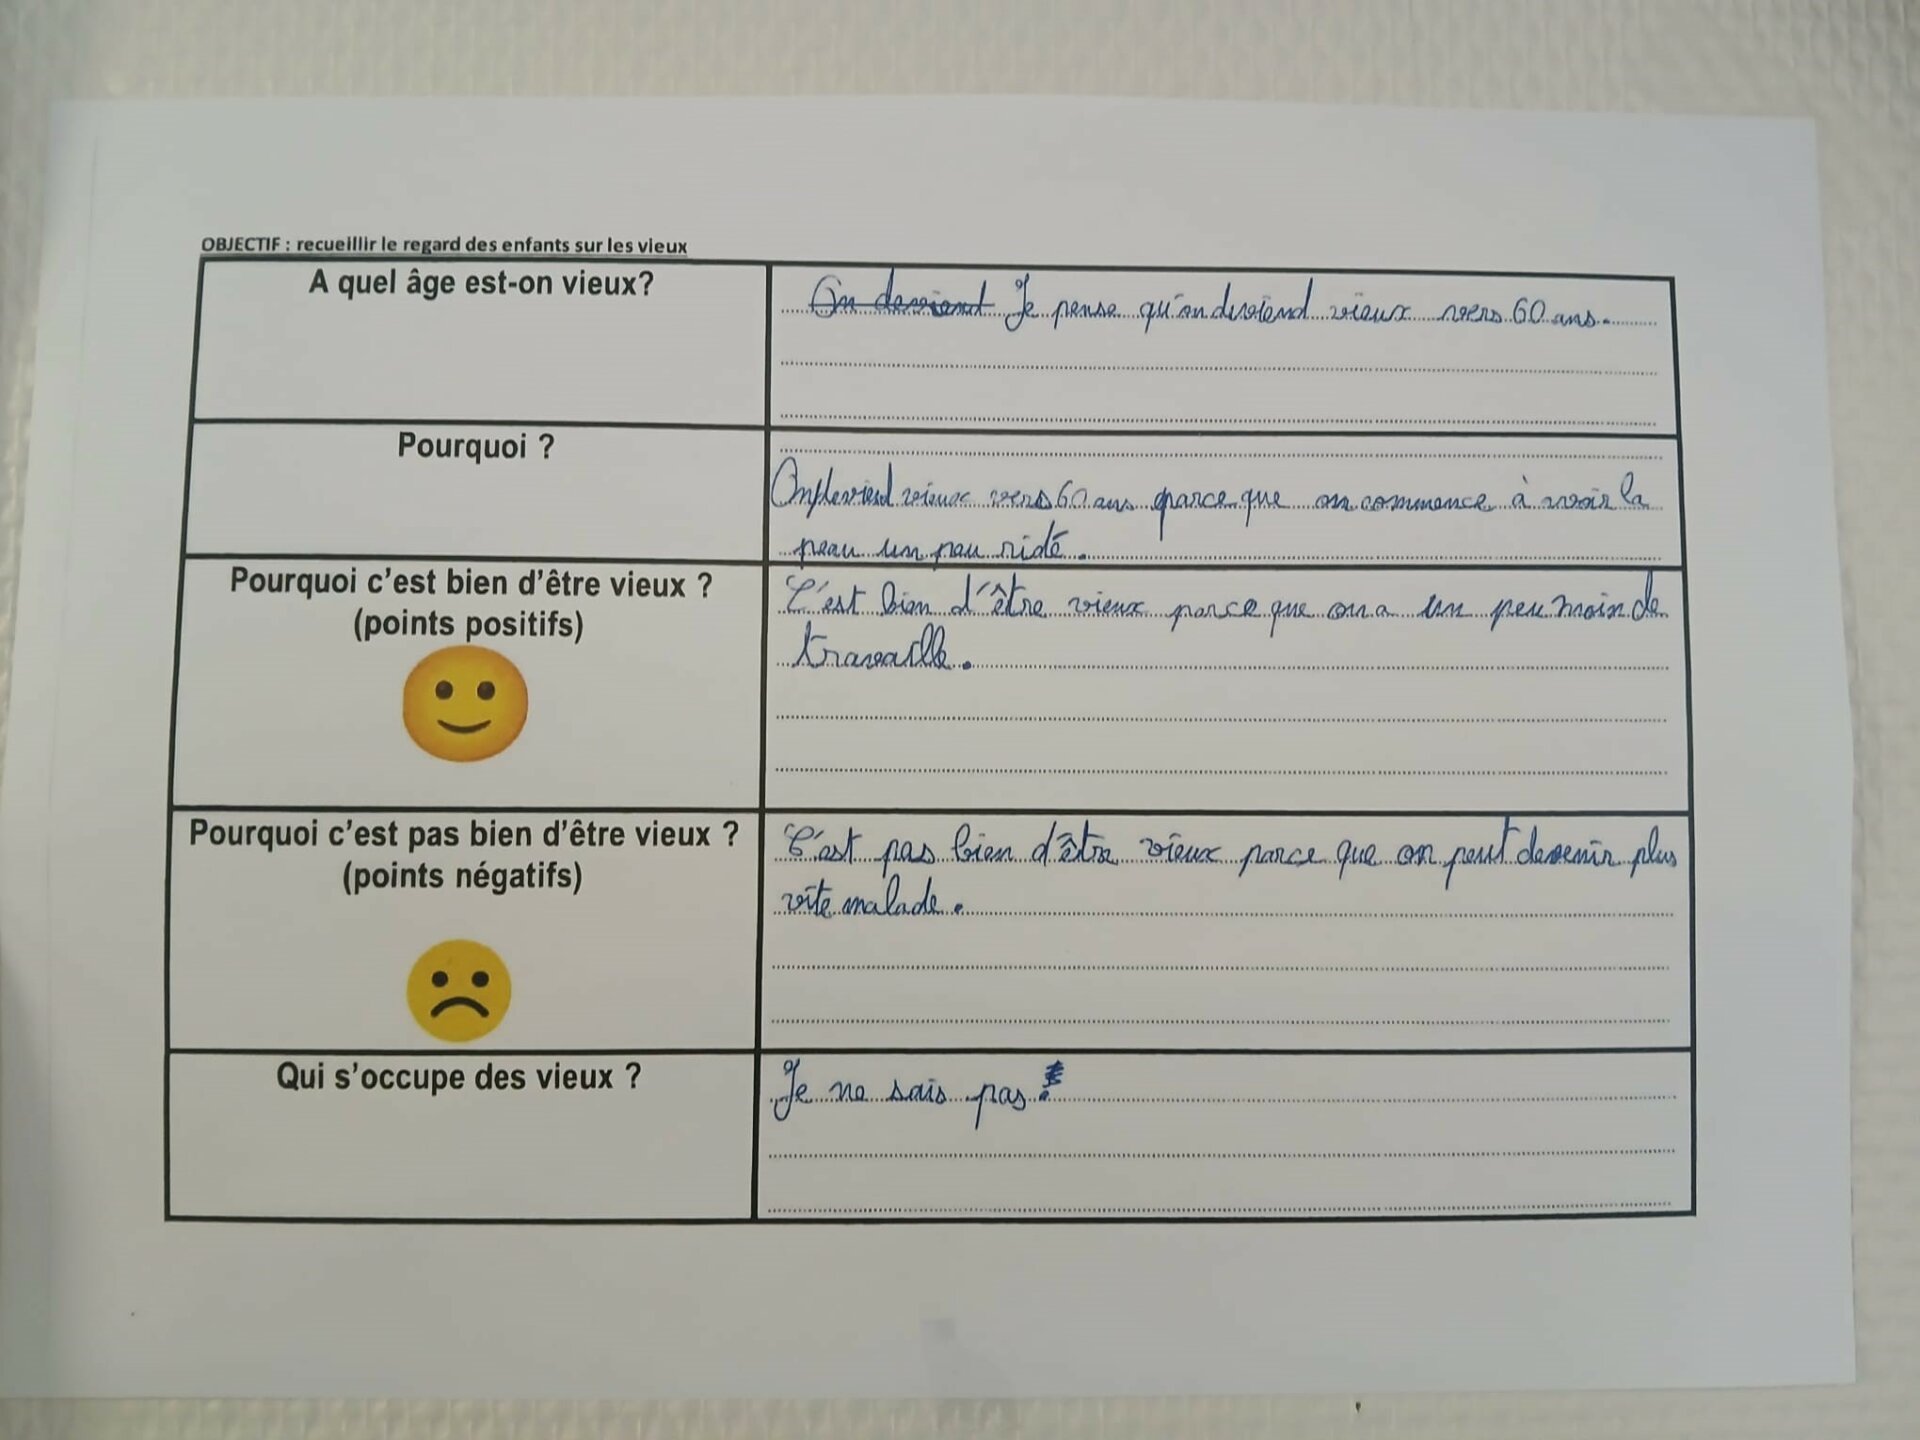 OBJECTIF : recueillir le regard des enfants sur les vieux
A quel âge est-on vieux?
On deviend Je pense qu'on deviend vieux vers 60 ans.
Pourquoi ?
On deviend vieux vers 60 ans parce que on commence à avoir la
peau un peu ridé.
Pourquoi c'est bien d'être vieux ?
(points positifs)
C'est bien d'être vieux parce que on a un peu moin de
travaille.
Pourquoi c'est pas bien d'être vieux ?
(points négatifs)
C'est pas bien d'être vieux parce que on peut devenir plus
vite malade.
Qui s'occupe des vieux ?
Je ne sais pas !